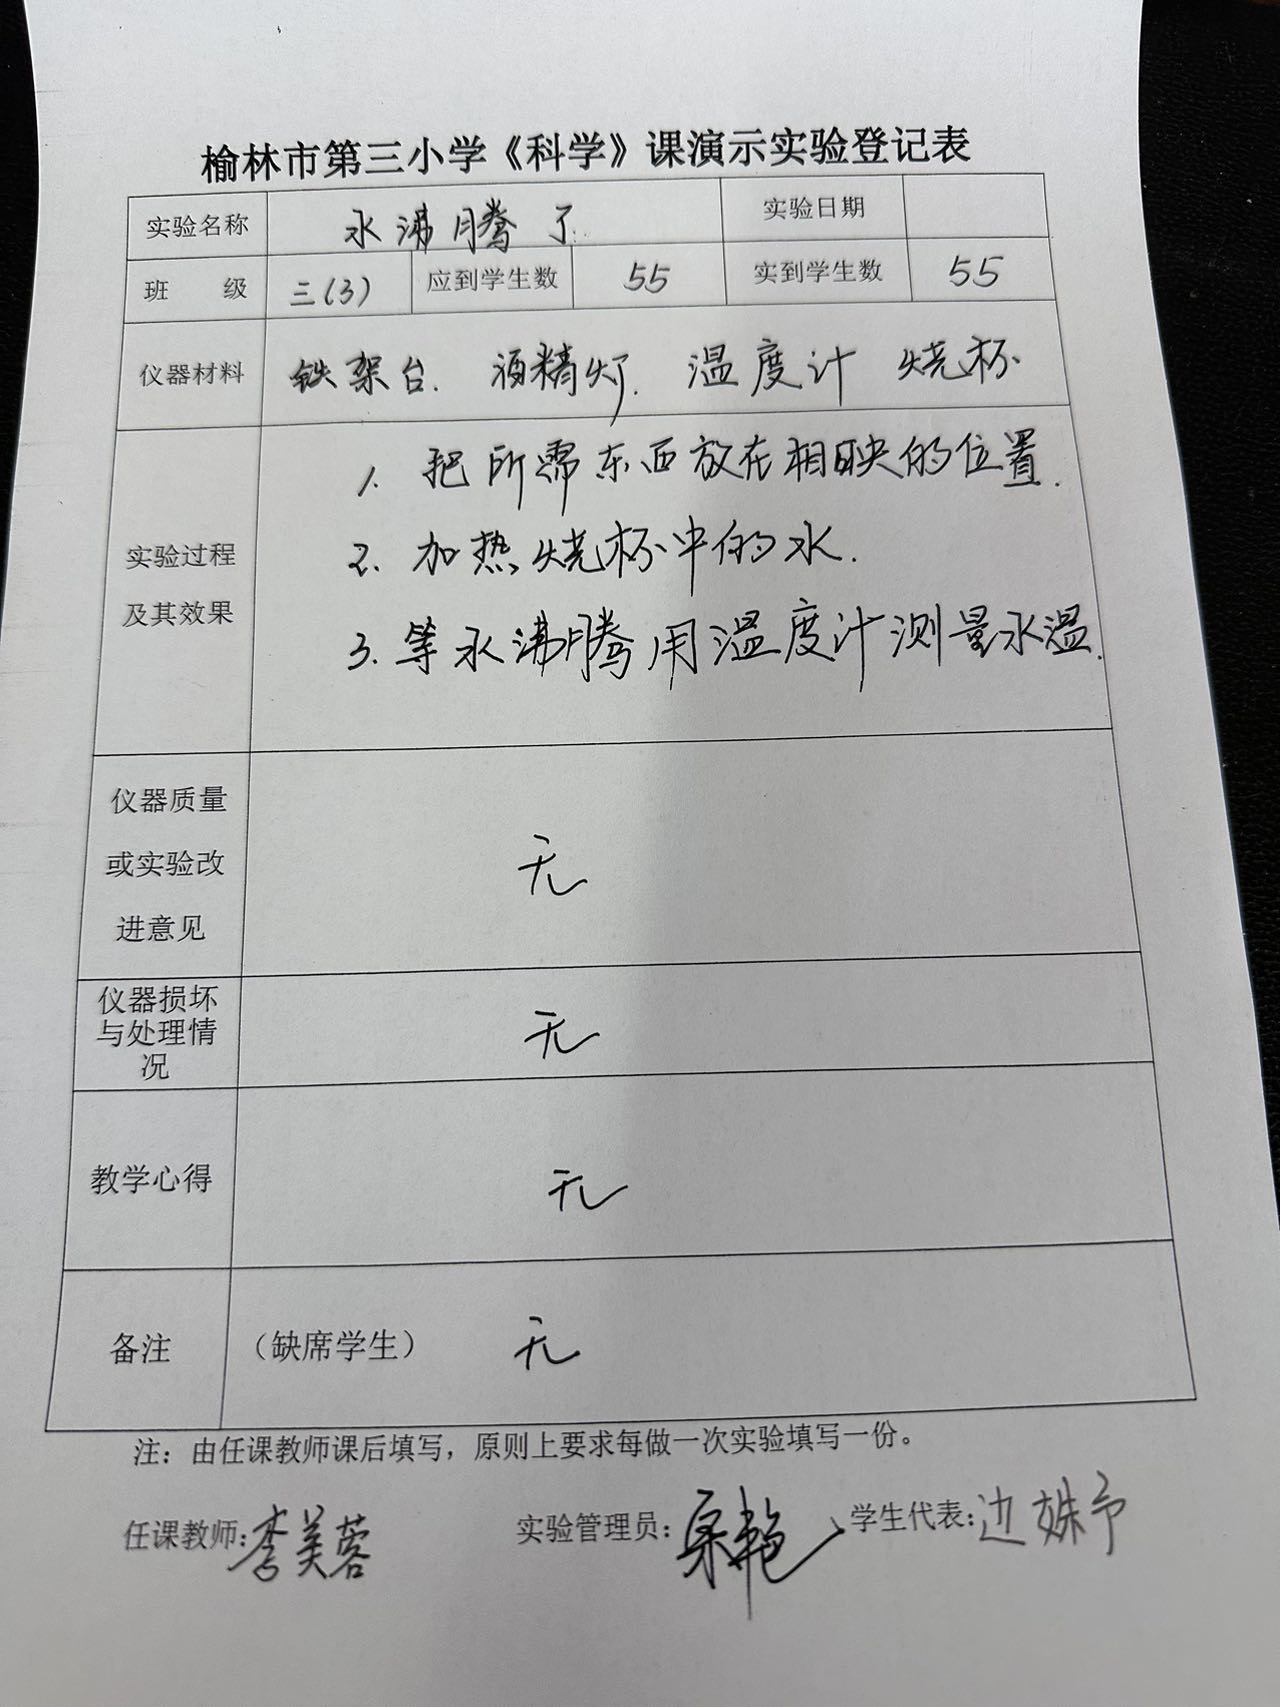 榆林市第三小学《科学》课演示实验登记表
实验名称 水沸腾了 实验日期
班 级 三(3) 应到学生数 55 实到学生数 55
仪器材料 铁架台. 酒精灯. 温度计 烧杯
实验过程
及其效果
1. 把所需东西放在相映的位置.
2. 加热烧杯中的水.
3. 等水沸腾用温度计测量水温.
仪器质量
或实验改
进意见
无
仪器损坏
与处理情
况
无
教学心得 无
备注 (缺席学生) 无
注：由任课教师课后填写，原则上要求每做一次实验填写一份。
任课教师:李美蓉 实验管理员: 学生代表:边姝予